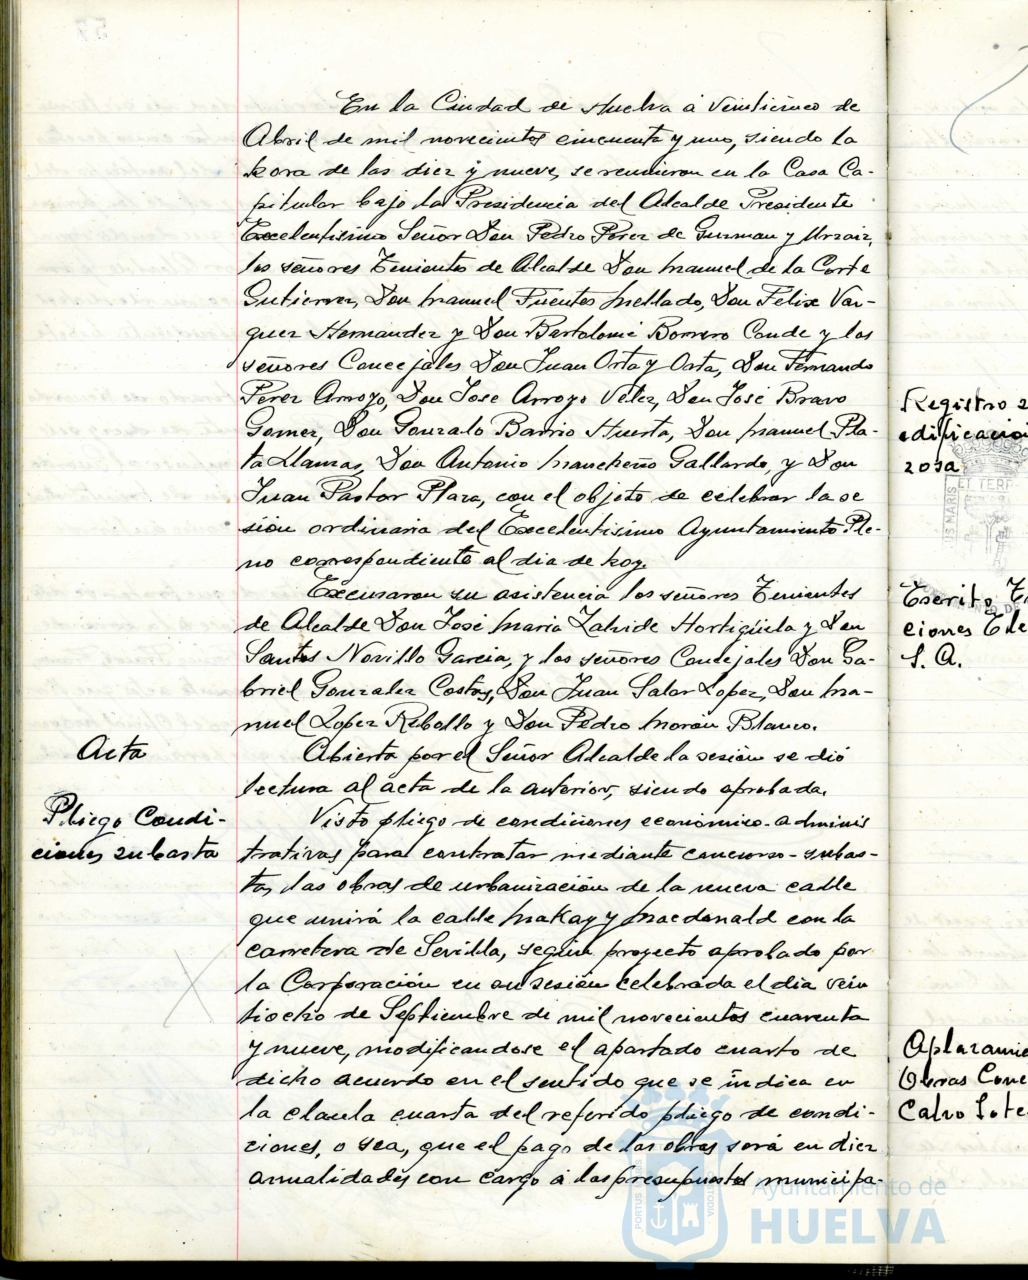 En la Ciudad de Huelva á veinticinco de
Abril de mil novecientos cincuenta y uno, siendo la
hora de las diez y nueve, se reunieron en la Casa Ca-
pitular bajo la Presidencia del Alcalde Presidente
Excelentísimo Señor Don Pedro Pérez de Guzman y Urzaiz,
los señores Tenientes de Alcalde Don Manuel de la Corte
Gutierrez, Don Manuel Fuentes Mellado, Don Félix Vaz-
quez Hernandez y Don Bartolomé Borrero Conde y los
señores Concejales Don Juan Orta y Orta, Don Fernando
Pérez Arroyo, Don José Arroyo Vélez, Don José Bravo
Gomez, Don Gonzalo Barrio Huerta, Don Manuel Pla-
ta Llanzas, Don Antonio Mancheño Gallardo, y Don
Juan Pastor Plaza, con el objeto de celebrar la se
sión ordinaria del Excelentísimo Ayuntamiento Ple-
no correspondiente al dia de hoy.
Excusaron su asistencia los señores Tenientes
de Alcalde Don José María Zalvide Hortigüela y Don
Santos Novillo García, y los señores Concejales Don Ga-
briel Gonzalez Costas, Don Juan Salar Lopez, Don Ma-
nuel Lopez Rebollo y Don Pedro Morón Blanco.
Acta
Abierta por el Señor Alcalde la sesión se dió
lectura al acta de la anterior, siendo aprobada.
Pliego Condi-
ciones subasta
Visto pliego de condiciones económico-adminis
trativas para contratar mediante concurso-subas-
ta, las obras de urbanización de la nueva calle
que unirá la calle Makay y Macdonald con la
carretera de Sevilla, según proyecto aprobado por
la Corporación en su sesión celebrada el día vein
tiocho de Septiembre de mil novecientos cuarenta
y nueve, modificandose el apartado cuarto de
dicho acuerdo en el sentido que se indica en
la claula cuarta del referido pliego de condi-
ciones, o sea, que el pago de las obras será en diez
anualidades con cargo á los presupuestos municipa-
Registro
edificacion
zosa
Escrito
ciones Ele
S. A.
Aplazamie
Obras Conc
Calvo Sote
Ayuntamiento de
HUELVA